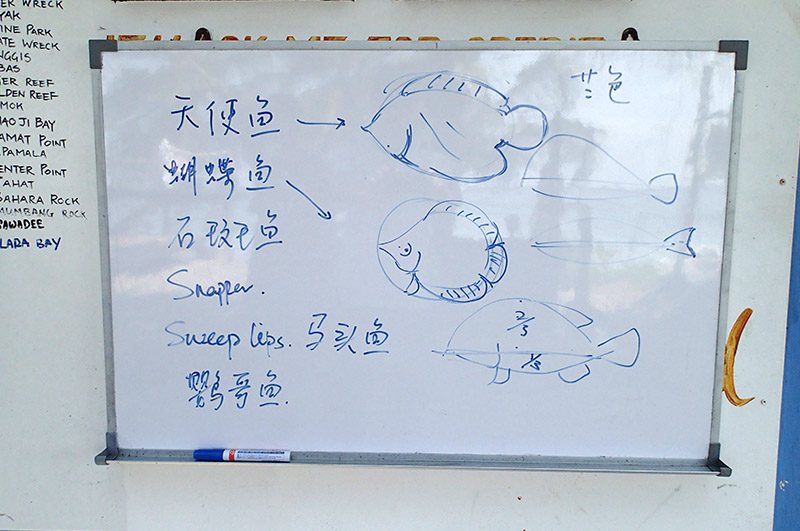 ER WRECK
YAK
INE PARK
ATE WRECK
NGGIS
BAS
ER REEF
LDEN REEF
MOK
AOJI BAY
AMAT POINT
PAMALA
ENTER POINT
TAHAT
SAHARA ROCK
MUMBANG ROCK
AWADEE
LARA BAY
天使鱼
蝴蝶鱼
石斑鱼
Snapper.
Sweep lips. 马头鱼
鹦哥鱼.
2/3
1/3